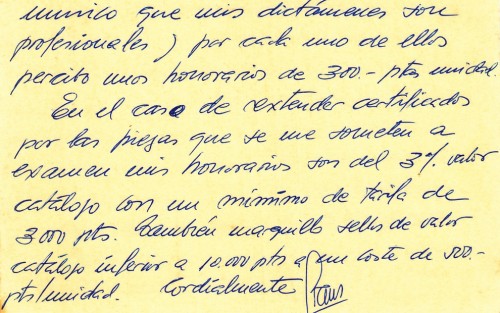 munico que mis dictámenes son
profesionales) por cada uno de ellos
percibo unos honorarios de 300.- ptas unidad.
En el caso de extender certificados
por las piezas que se me someten a
examen mis honorarios son del 3% valor
catálogo con un mínimo de tarifa de
3000 pts. También marquillo sellos de valor
catálogo inferior a 10.000 pts a un coste de 500.-
pts/unidad. Cordialmente